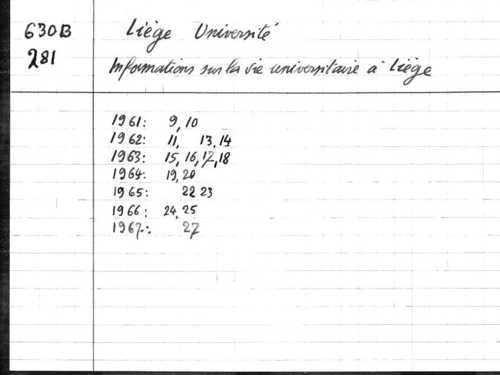 630B
281
Liège Université
Informations sur la vie universitaire à Liège
1961: 9, 10
1962: 11, 13, 14
1963: 15, 16, 17, 18
1964: 19, 20
1965: 22 23
1966: 24, 25
1967: 27